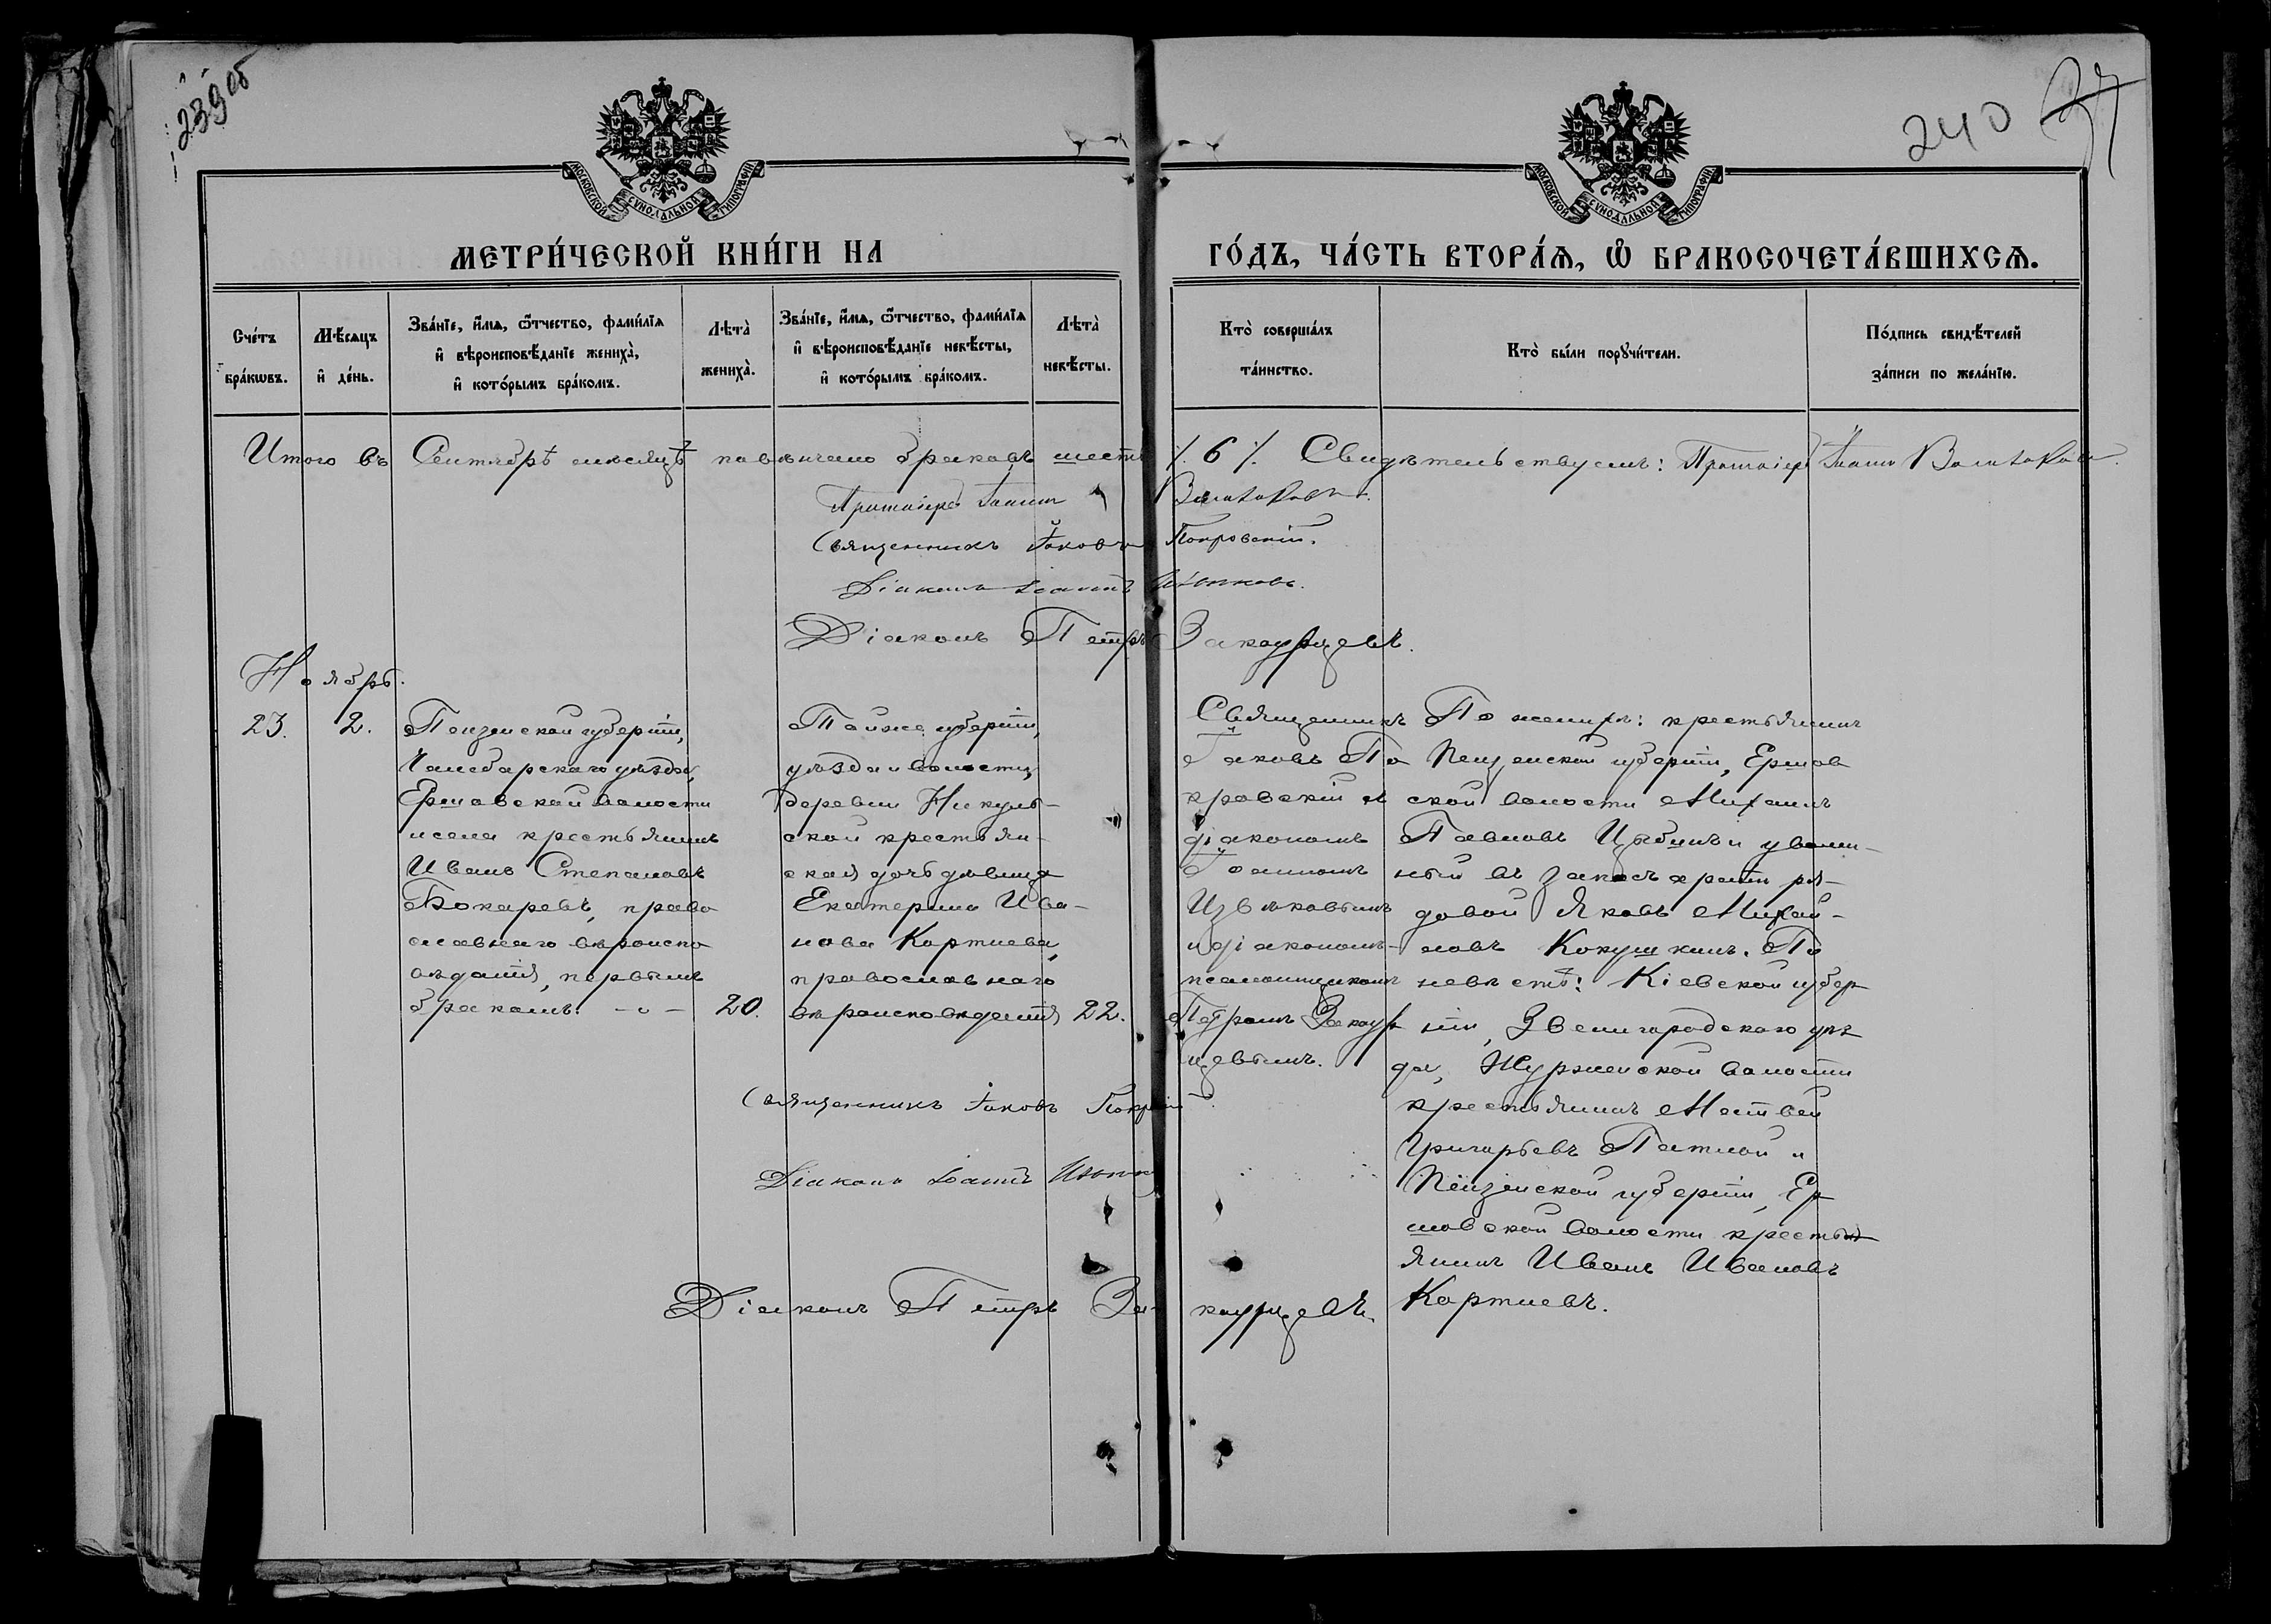 239 об
240
37
МОСКОВСКОЙ СѴНОДАЛЬНОЙ ТИПОГРАФІИ
МОСКОВСКОЙ СѴНОДАЛЬНОЙ ТИПОГРАФІИ
МЕТРИ́ЧЕСКОЙ КНИ́ГИ НА
ГО́ДЪ, ЧА́СТЬ ВТОРА́Ѧ, Ѽ БРАКОСОЧЕТА́ВШИХСѦ.
Сче́тъ бра́кѡвъ.
Мѣ́сѧцъ и҆ де́нь.
Зва́нїе, и҆́мѧ, ѻ҆́тчество, фами́лїѧ
и҆ вѣроисповѣ́данїе жениха̀,
и҆ кото́рымъ бра́комъ.
Лѣта̀ жениха̀.
Зва́нїе, и҆́мѧ, ѻ҆́тчество, фами́лїѧ
и҆ вѣроисповѣ́данїе невѣ́сты,
и҆ кото́рымъ бра́комъ.
Лѣта̀ невѣ́сты.
Кто̀ соверша́лъ та́инство.
Кто̀ бы́ли порꙋчи́тели.
По́дпись свидѣ́телей
за́писи по жела́нїю.
Итого въ Сентябрѣ мѣсяцѣ повѣнчано браковъ шесть /. 6 /. Свидѣтельствуемъ: Протоіерей Іоаннъ
Протоіерей Іоаннъ
Священникъ Іаковъ Покровскій.
Діаконъ Іоаннъ Изъюмовъ
Діаконъ Петръ Закаурцевъ.
Ноябрь.
23.
2.
Пензенской губерніи,
Чембарскаго уѣзда,
Ершовской волости
и села крестьянинъ
Иванъ Степановъ
Бокаревъ, право
славнаго вѣроиспо
вѣданія, первымъ
бракомъ. - " -
20.
Той же губерніи,
уѣзда и волости,
деревни Никуль-
ской крестьян-
ская дочь дѣвица
Екатерина Ива-
нова Картнева,
православнаго
вѣроисповѣданія
22.
Священникъ
Іаковъ По
кровскій съ
діакономъ
Іоанномъ
и діакономъ-
псаломщикомъ
Петромъ Закаур
цевымъ.
По женихѣ: крестьянинъ
Пензенской губерніи, Ершов
ской волости Михаилъ
Павловъ Цыбинъ и уволен-
ный въ запасъ арміи ря-
довой Яковъ Михай-
ловъ Кокушкинъ. По
невѣстѣ: Кіевской губер
ніи, Звенигородскаго уѣз
да, Журженской волости
крестьянинъ Матвей
Григорьевъ Патлай и
Пензенской губерніи, Ер
шовской волости кресть
янинъ Иванъ Ивановъ
Картневъ.
Священникъ Іаковъ
Діаконъ Іоаннъ
Діаконъ Петръ Закаурцевъ.